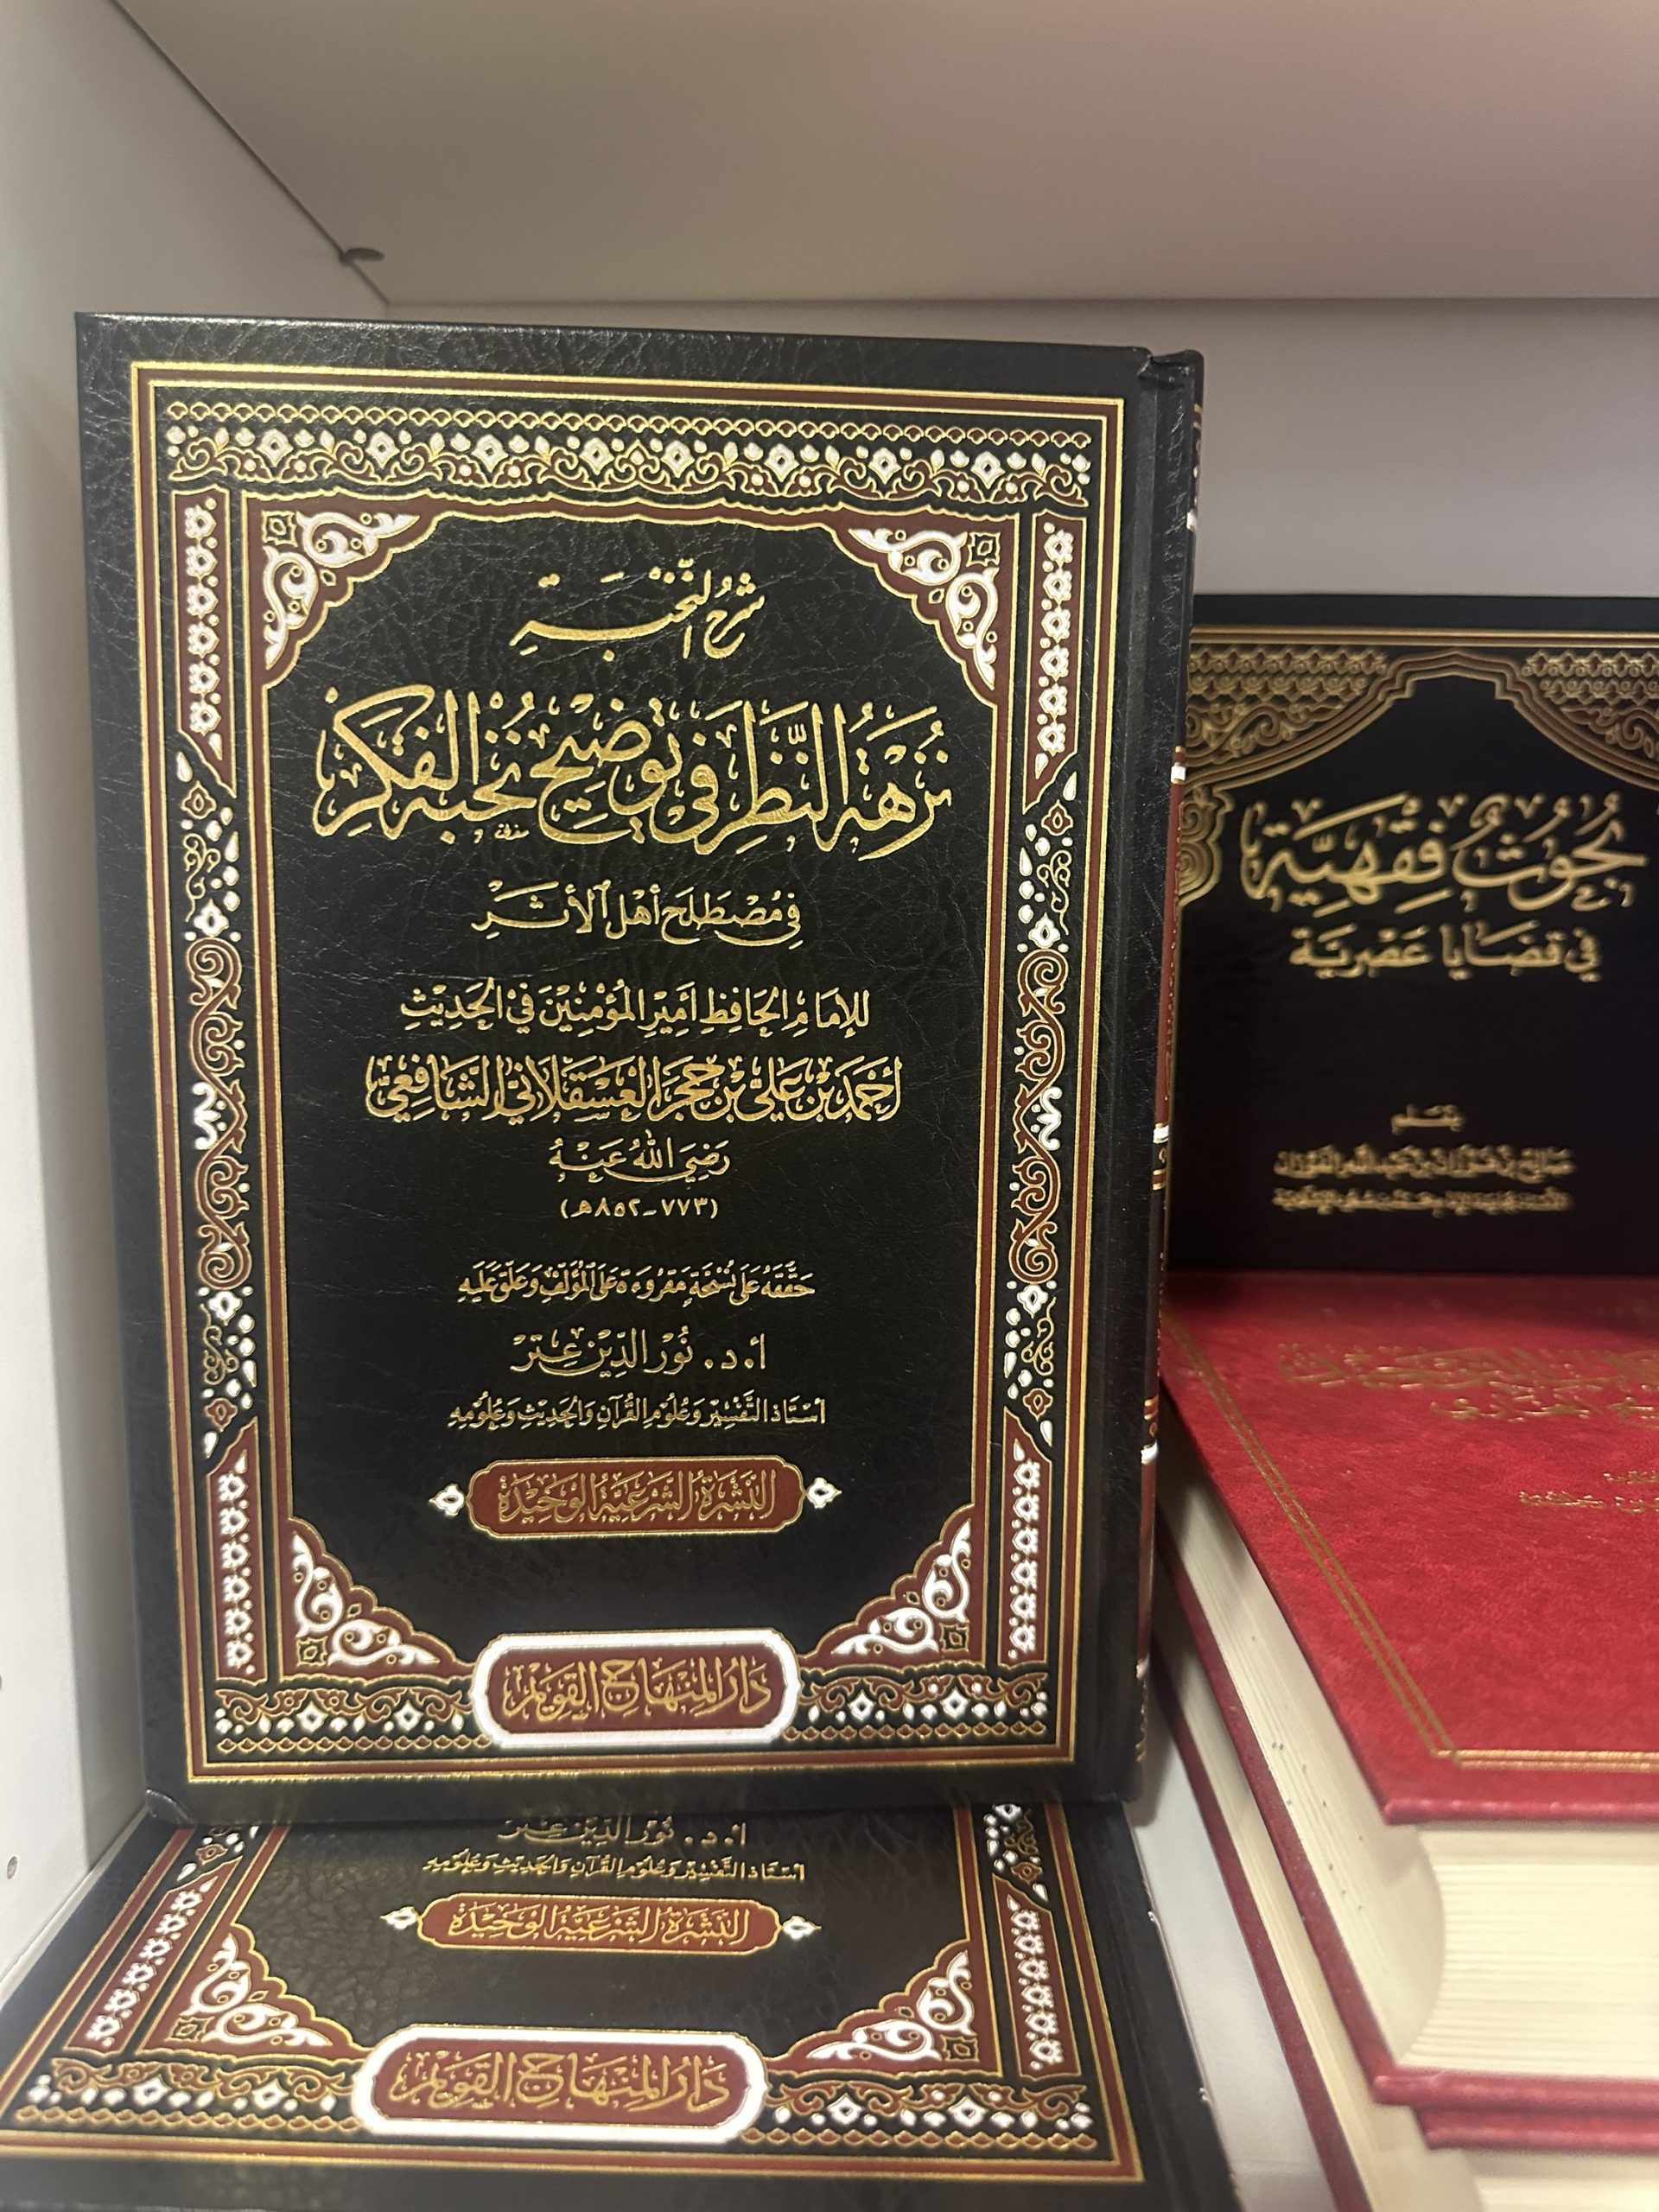 شَرْحُ النُّخْبَةِ
نُزْهَةُ النَّظَرِ فِي تَوْضِيحِ نُخْبَةِ الْفِكَرِ
فِي مُصْطَلَحِ أَهْلِ الْأَثَرِ
لِلإِمَامِ الْحَافِظِ أَمِيرِ الْمُؤْمِنِينَ فِي الْحَدِيثِ
أَحْمَدَ بْنِ عَلِيِّ بْنِ حَجَرٍ الْعَسْقَلَانِيِّ الشَّافِعِيِّ
رَضِيَ اللهُ عَنْهُ
(٧٧٣-٨٥٢هـ)
حَقَّقَهُ عَلَى نُسْخَةٍ مَقْرُوءَةٍ عَلَى الْمُؤَلِّفِ وَعَلَّقَ عَلَيْهِ
أ.د. نُورُ الدِّينِ عِتْر
أُسْتَاذُ التَّفْسِيرِ وَعُلُومِ الْقُرْآنِ وَالْحَدِيثِ وَعُلُومِهِ
النَّشْرَةُ الشَّرْعِيَّةُ الْوَحِيدَةُ
دَارُ الْمِنْهَاجِ الْقَوِيمِ
أ.د. نُورُ الدِّينِ عِتْر
أُسْتَاذُ التَّفْسِيرِ وَعُلُومِ الْقُرْآنِ وَالْحَدِيثِ وَعُلُومِهِ
النَّشْرَةُ الشَّرْعِيَّةُ الْوَحِيدَةُ
دَارُ الْمِنْهَاجِ الْقَوِيمِ
بُحُوثٌ فِقْهِيَّةٌ
فِي قَضَايَا عَصْرِيَّة
بقلم
صالح بن فوزان بن عبد الله الفوزان